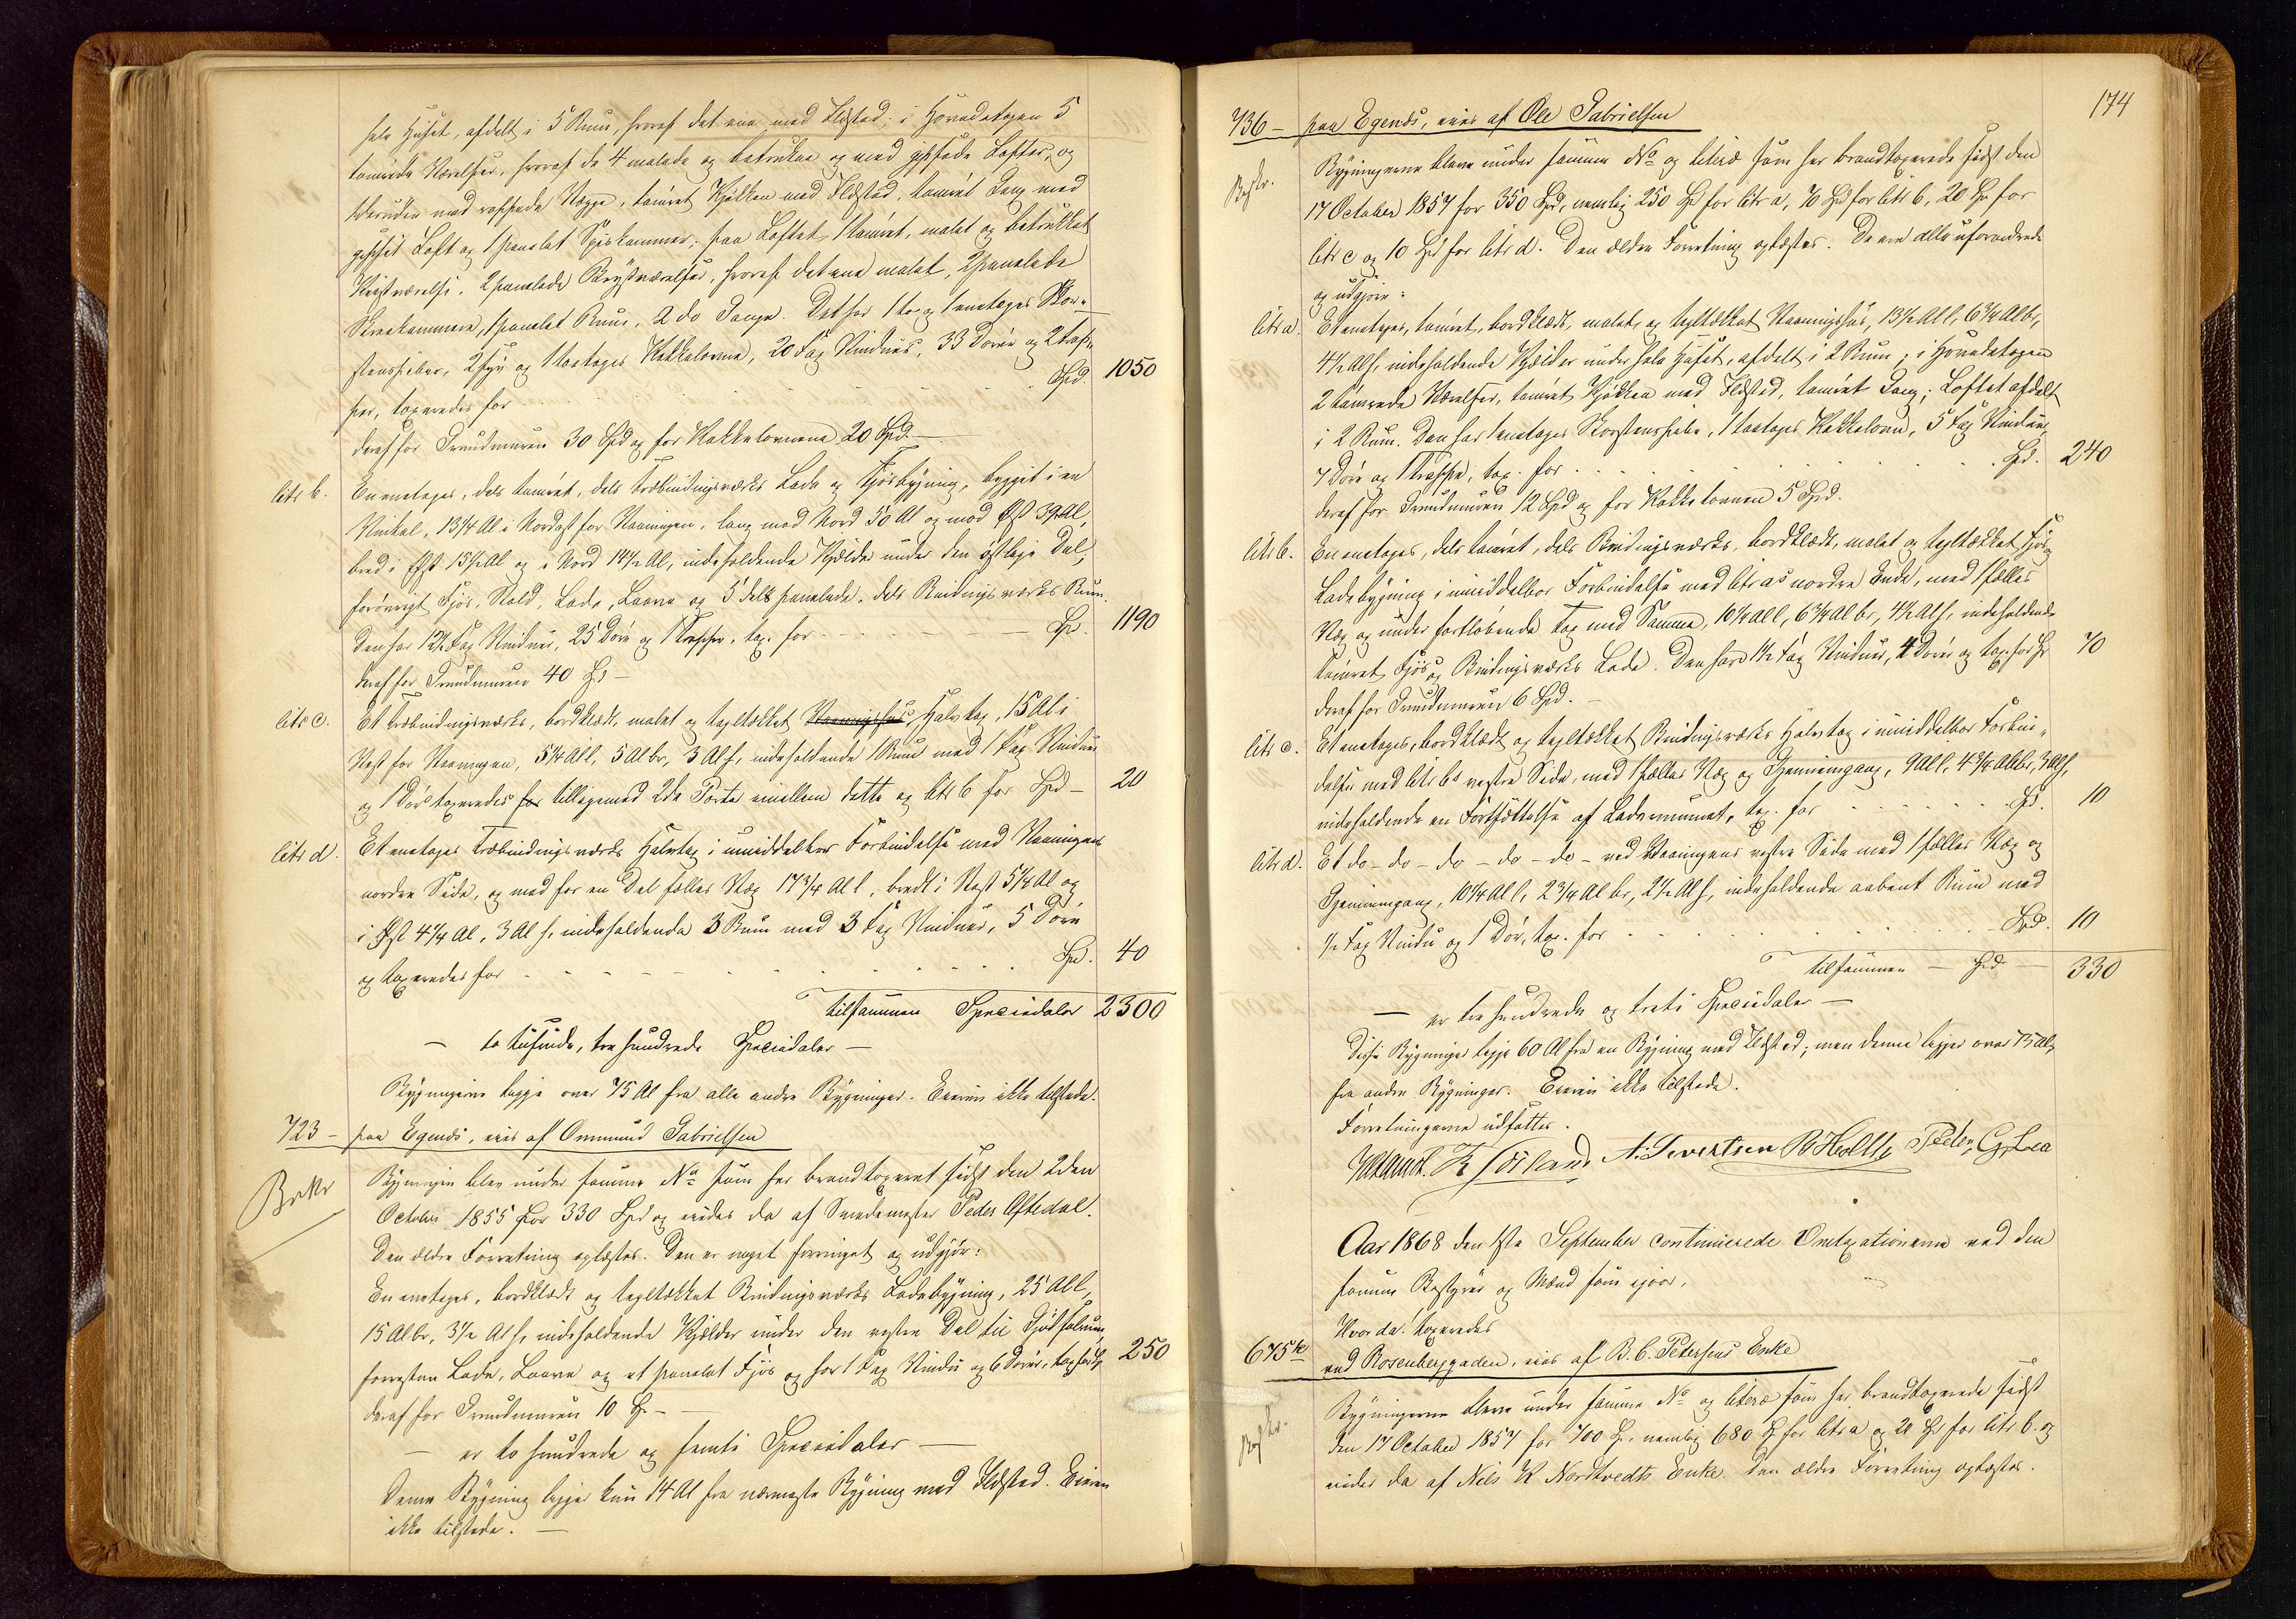 hele Huset, afdelt i 5 Rum, hvoraf det ene med Ildsted; i Hovedetagen 5
tømrede Værelser, hvoraf de 4 malede og betrukne og med gipsede Lofter, og
desuden med rappede Vægge, tømret Kjøkken med Ildsted, tømret Gang med
gipset Loft og 1 panelet Spiskammer; paa Loftet 1 tømret, malet og betrukket
Kvistværelse, 2 panelede Værelser, hvoraf det ene malet, 2 panelede
Skraakammere, 1 panelet Rum, 2 do Gange. Det har 1 to og 1 enetages Skor-
stenspiber, 2 fyr og 1 toetages Kakkelovne, 20 Fag Vinduer, 33 Døre og 2 Trap-
per, taxeredes for . . . Spd. 1050
deraf for Grundmuren 30 Spd og for Kakkelovnene 20 Spd. —
litr b. En enetages, dels tømret, dels Træbindingsværks Lade og Fjøsbygning, bygget i en
Vinkel, 13 1/4 Al i Nordost for Vaaningen, lang mod Nord 50 Al og mod Øst 39 Al,
bred i Øst 15 1/2 Al og i Nord 14 1/2 Al, indeholdende Kjælder under den østlige Del,
forøvrigt Fjøs, Stald, Lade, Laave og 5 dels panelede, dels Bindingsværks Rum.
Den har 12 1/2 Fag Vinduer, 25 Døre og 1 Trappe, tax. for — Sp. 1190
deraf for Grundmuren 40 Sp —
litr c. Et Træbindingsværks, bordklædt, malet og tegltækket Vaaningshus Halvtag, 15 Al i
Vest for Vaaningen, 5 1/4 Al l, 5 Al br, 3 Al h, indeholdende 1 Rum med 1 Fag Vindue
og 1 Dør taxeredes for tilligemed 2de Porte imellem dette og litr b for Spd — 20
litr d. Et enetages Træbindingsværks Halvtag i umiddelbar Forbindelse med Vaaningens
nordre Side, og med for en Del fælles Væg 17 3/4 Al l, bredt i Vest 5 1/4 Al og
i Øst 4 1/4 Al, 3 Al h, indeholdende 3 Rum med 3 Fag Vinduer, 5 Døre
og taxeredes for . . . Sp. 40
tilsammen Speciedaler 2300
— to tusinde, tre hundrede Speciedaler —
Bygningerne ligge over 75 Al fra alle andre Bygninger. Eieren ikke tilstede.
723 — paa Egenæs, eies af Ommund Gabrielsen
Bkr
Bygningen blev under samme No som her brandtaxeret sidst den 2den
October 1855 for 330 Spd og eiedes da af Smedemester Peder Aftedal.
Den ældre Forretning oplæstes. Den er noget forringet og udgjør:
En enetages, bordklædt og tegltækket Bindingsværks Ladebygning, 25 Al l,
15 Al br, 3 1/2 Al h, indeholdende Kjælder under den vestre Del til Gjødselrum,
forresten Lade, Laave og et panelet Fjøs og har 1 Fag Vindu og 6 Døre, tax for Sp 250
deraf for Grundmuren 10 Sp —
— er to hundrede og femti Speciedaler —
Denne Bygning ligger kun 14 Al fra nærmeste Bygning med Ildsted. Eieren
ikke tilstede. —
174
736 — paa Egenæs, eies af Ole Gabrielsen
Bygningerne bleve under samme No og literæ som her brandtaxerede sidst den
17 October 1857 for 350 Spd, nemlig 250 Sp for litr a, 70 Sp for litr b, 20 Sp for
litr c og 10 Spd for litr d. Den ældre Forretning oplæstes. De ere alle uforandrede
og udgjøre:
litr a. Et enetages, tømret, bordklædt, malet og tegltækket Vaaningshus, 13 1/2 Al l, 6 3/4 Al br,
4 1/2 Al h, indeholdende Kjælder under hele Huset, afdelt i 2 Rum; i Hovedetagen
2 tømrede Værelser, tømret Kjøkken med Ildsted, tømret Gang; Loftet afdelt
i 2 Rum. Den har 1 enetages Skorstenspibe, 1 toetages Kakkelovn, 5 Fag Vinduer,
7 Døre og 1 Trappe, tax. for . . . Spd. 240
deraf for Grundmuren 12 Spd og for Kakkelovnen 5 Spd.
litr b. En enetages, dels tømret, dels Bindingsværks, bordklædt, malet og tegltækket Fjøs og
Ladebygning i umiddelbar Forbindelse med litr a's nordre Ende, med 1 fælles
Væg og under fortløbende Tag med Samme, 10 1/4 Al l, 6 3/4 Al br, 4 1/2 Al h, indeholdende
tømret Fjøs og Bindingsværks Lade. Den har 1 1/2 Fag Vinduer, 4 Døre og tax. for Sp 70
deraf for Grundmuren 6 Spd. —
litr c. Et enetages, bordklædt og tegltækket Bindingsværks Halvtag i umiddelbar Forbin-
delse med litr b's vestre Side, med 1 fælles Væg og Gjennemgang, 9 Al l, 4 3/4 Al br, 3 Al h,
indeholdende en Fortsættelse af Laderummet, tax. for . . . Sp. 10
litr d. Et do — do — do — do — do — ved Vaaningens vestre Side med 1 fælles Væg og
Gjennemgang, 10 1/4 Al l, 2 3/4 Al br, 2 1/2 Al h, indeholdende aabent Rum med
1/2 Fag Vindu og 1 Dør, tax. for . . . Spd. 10
tilsammen — Spd — 330
— er tre hundrede og treti Speciedaler —
Disse Bygninger ligge 60 Al fra en Bygning med Ildsted; men denne ligger over 75 Al
fra andre Bygninger. Eieren ikke tilstede.
Forretningerne udsattes.
A. Sivertsen B. Holth Peder G. Lea
Aar 1868 den 1ste September continuerede Omtaxationerne ved den
samme Bestyrer og Mænd som igaar.
Hvorda taxeredes
675 b ved Rosenberggaden, eies af B. C. Petersens Enke
Bygningerne bleve under samme No og literæ som her brandtaxerede sidst
den 17 October 1857 for 700 Sp, nemlig 680 Sp for litr a og 20 Sp for litr b. og
eiedes da af Nils K Nordtvedts Enke. Den ældre Forretning oplæstes.